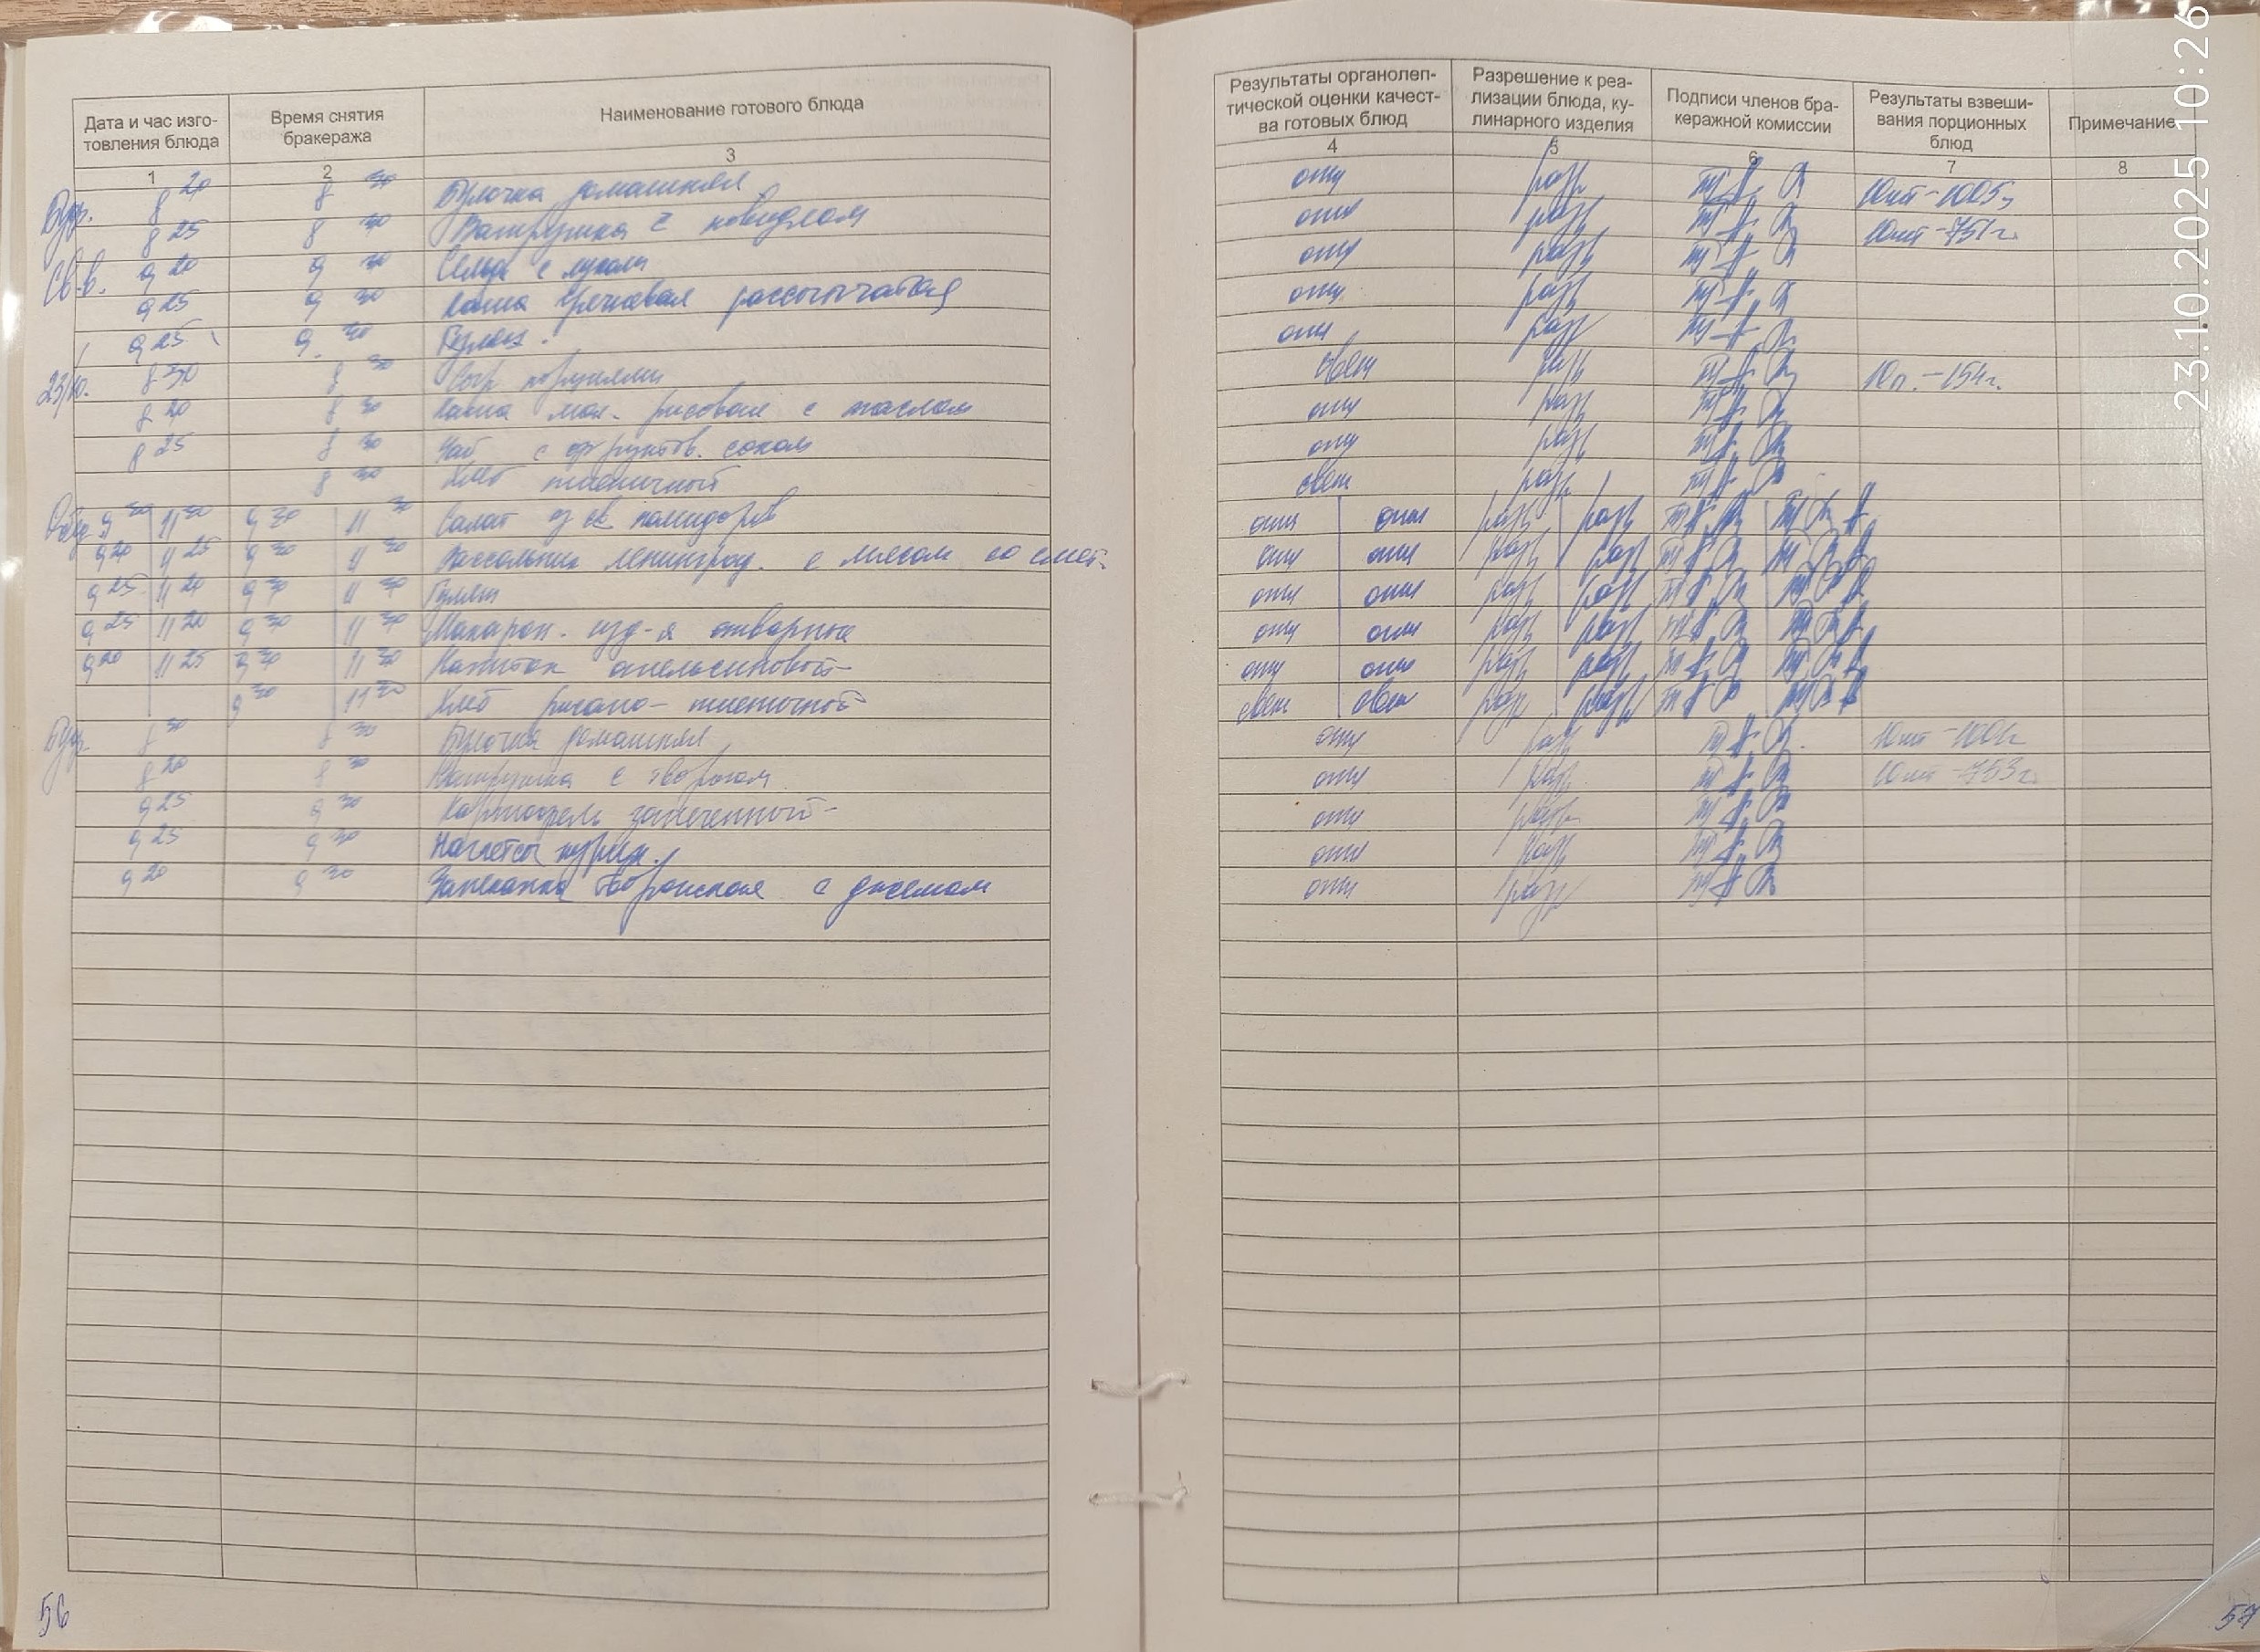 Дата и час изго-
товления блюда
Время снятия
бракеража
Наименование готового блюда
Результаты органолеп-
тической оценки качест-
ва готовых блюд
Разрешение к реа-
лизации блюда, ку-
линарного изделия
Подписи членов бра-
керажной комиссии
Результаты взвеши-
вания порционных
блюд
Примечание
1 2 3 4 5 6 7 8
Буф. 8 20 8 30 Булочка домашняя отл разр 10шт-1005г
8 25 8 30 Ватрушка с повидлом отл разр 10шт-751г
Св.в. 9 20 9 30 Сельдь с луком отл разр
9 25 9 30 Каша гречневая рассыпчатая отл разр
9 25 9 30 Гуляш. отл разр
23/10. 8 30 8 30 Сыр порциями свеж разр 10п.-154г.
8 20 8 30 Каша мол. рисовая с маслом отл разр
8 25 8 30 Чай с фруктов. соком отл разр
8 30 Хлеб пшеничный свеж разр
Обед 9 20 11 20 9 30 11 30 Салат из св. помидоров отл отл разр разр
9 20 11 25 9 30 11 30 Рассольник ленинград. с мясом со смет. отл отл разр разр
9 25 11 20 9 30 11 30 Гуляш отл отл разр разр
9 25 11 20 9 30 11 30 Макарон. изд-я отварные отл отл разр разр
9 20 11 25 9 30 11 30 Напиток апельсиновый отл отл разр разр
9 30 11 30 Хлеб ржано-пшеничный свеж свеж разр разр
Буф. 8 30 8 30 Булочка домашняя отл разр
8 20 8 30 Ватрушка с творогом отл разр 10шт-753г
9 25 9 30 Картофель запеченный отл разр
9 25 9 30 Наггетсы курин. отл разр
9 20 9 30 Запеканка творожная с джемом отл разр
56
57
23.10.2025 10:26